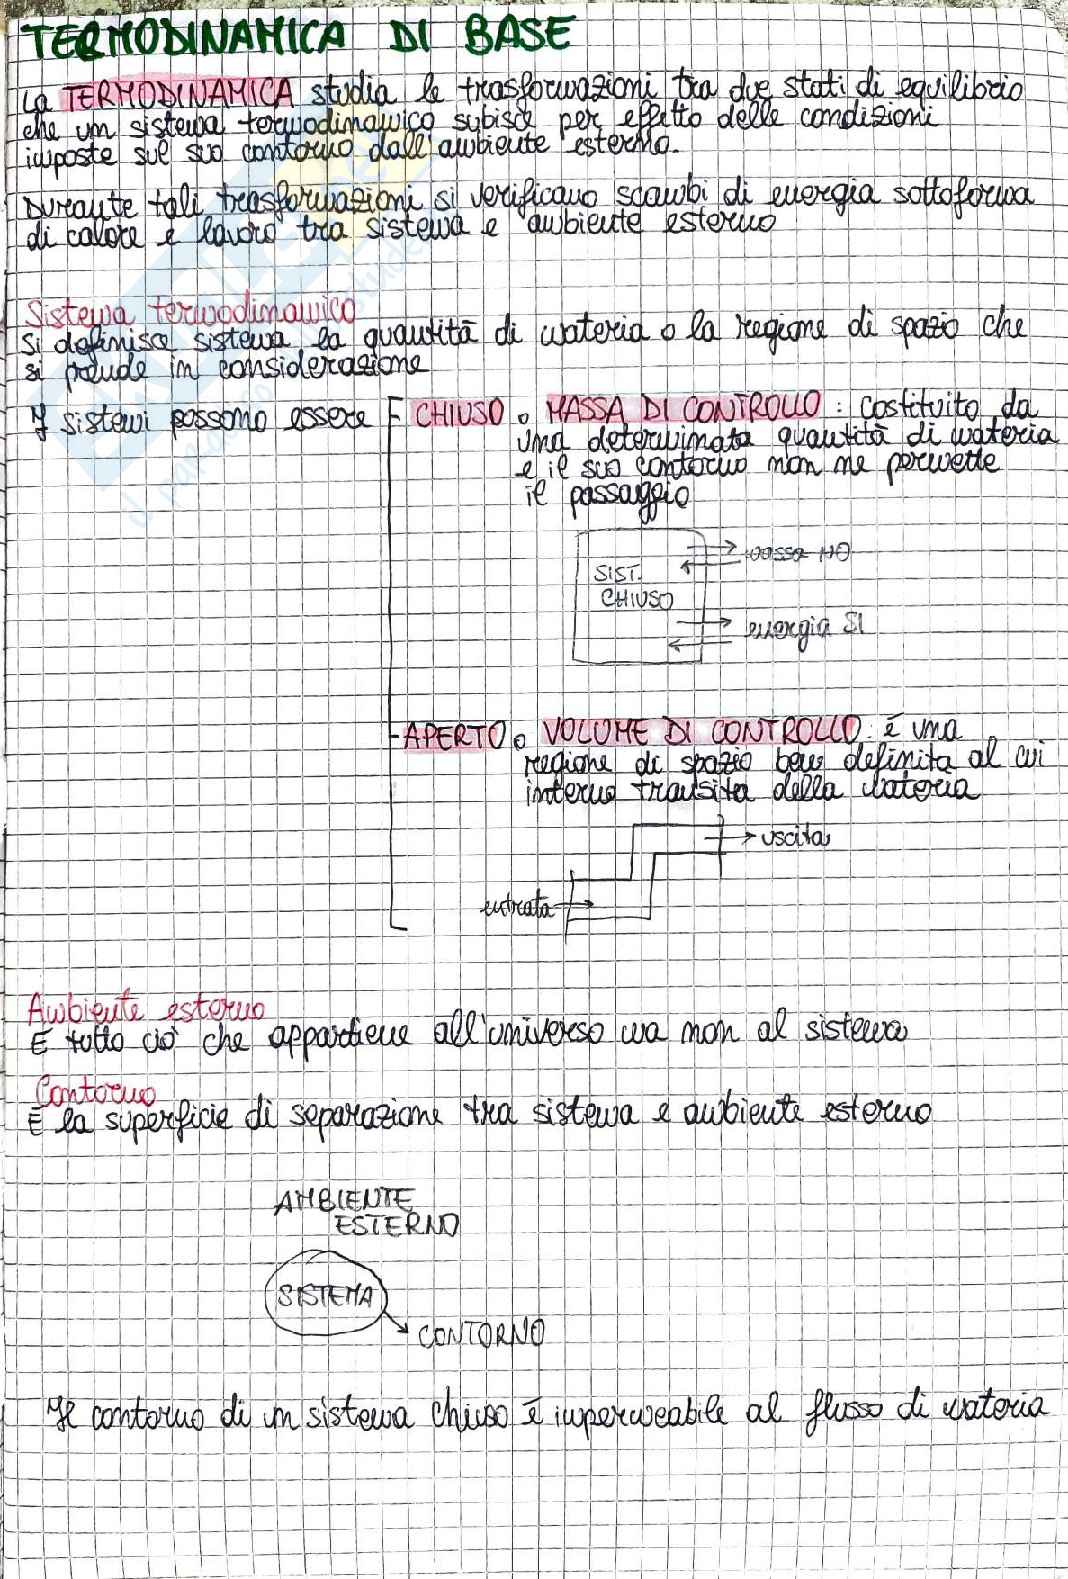 TERMODINAMICA DI BASE
La TERMODINAMICA studia le trasformazioni tra due stati di equilibrio
che un sistema termodinamico subisce per effetto delle condizioni
imposte sul suo contorno dall'ambiente esterno.
Durante tali trasformazioni si verificano scambi di energia sottoforma
di calore e lavoro tra sistema e ambiente esterno
Sistema termodinamico
Si definisce sistema la quantità di materia o la regione di spazio che
si prende in considerazione
I sistemi possono essere
CHIUSO o MASSA DI CONTROLLO: costituito da
una determinata quantità di materia
e il suo contorno non ne permette
il passaggio
massa NO
SIST.
CHIUSO
energia SI
APERTO o VOLUME DI CONTROLLO: è una
regione di spazio ben definita al cui
interno transita della materia
uscita
entrata
Ambiente esterno
È tutto ciò che appartiene all'universo ma non al sistema
Contorno
È la superficie di separazione tra sistema e ambiente esterno
AMBIENTE
ESTERNO
SISTEMA
CONTORNO
Il contorno di un sistema chiuso è impermeabile al flusso di materia